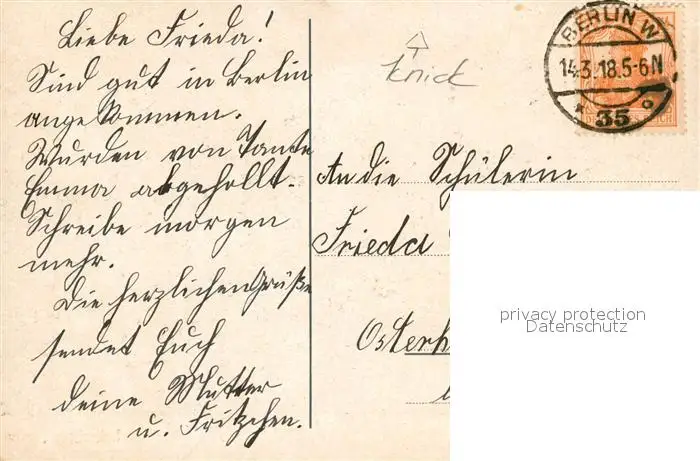 Liebe Frieda!
Sind gut in Berlin
angekommen.
Wurden von Tante
Emma abgehollt.
Schreibe morgen
mehr.
Die herzlichen Grüße
sendet Euch
deine Mutter
u. Fritzchen.
knick
BERLIN W
14.3.18.5-6N
* 35 o
An die Schülerin
Frieda
Osterh
privacy protection
Datenschutz